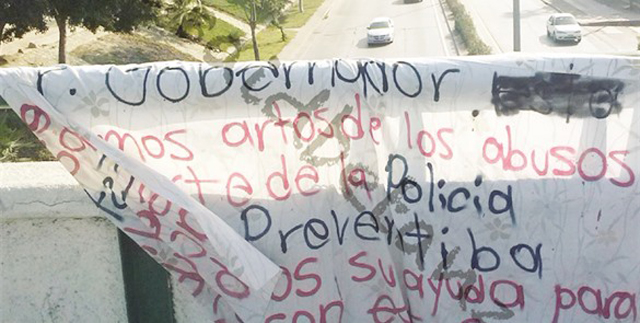 r. Gobernador
amos artos de los abusos
rte de la Policia
Preventiba
os su ayuda para
con e